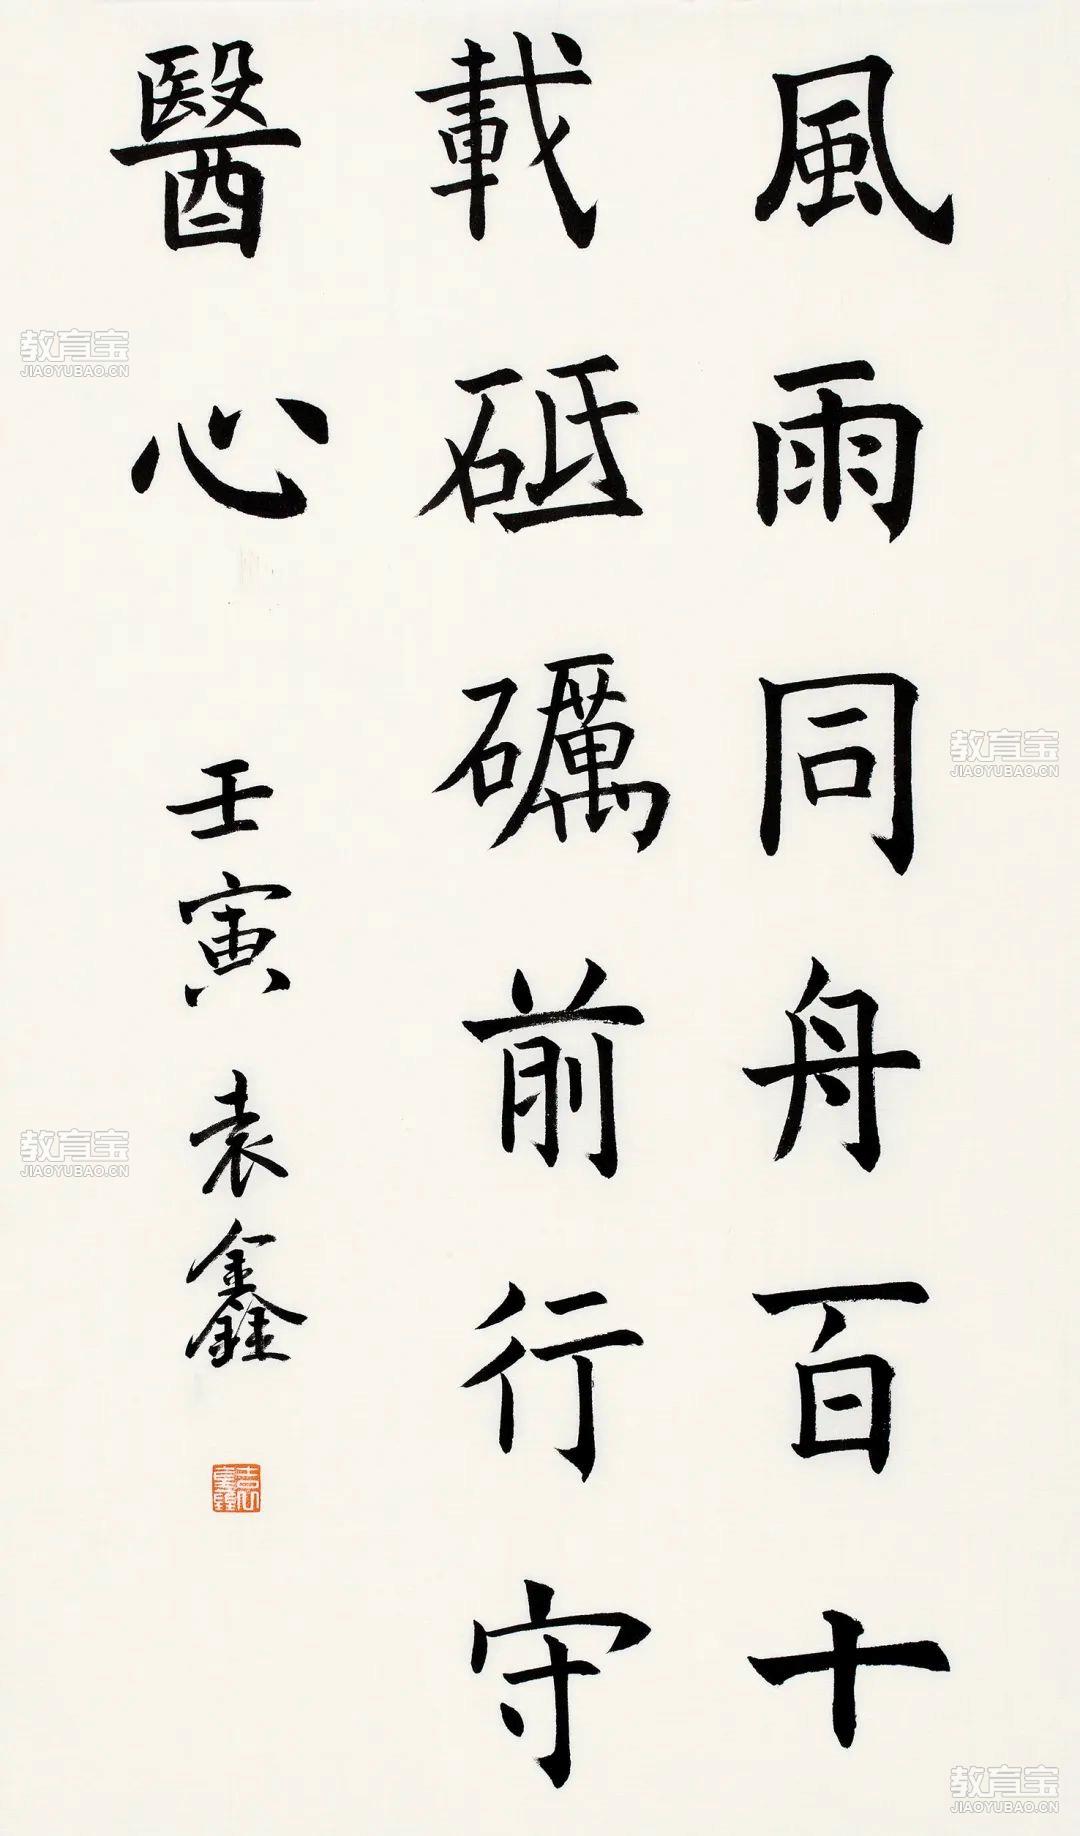 風雨同舟百十
載砥礪前行守
醫心
壬寅 袁鑫
袁鑫
教育宝
JIAOYUBAO.CN
教育宝
JIAOYUBAO.CN
教育宝
JIAOYUBAO.CN
教育宝
JIAOYUBAO.CN